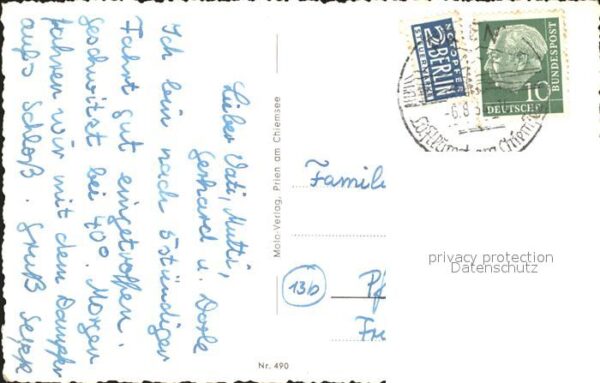 Lieber Vati, Mutti,
Gerhard u. Dorle
Ich bin nach 5stündiger
Fahrt gut eingetroffen.
Geschwitzt bei 40°. Morgen
fahren wir mit dem Dampfer
aufs Schloß. Gruß Sepp
Mola-Verlag, Prien am Chiemsee
Nr. 490
NOTOPFER
2 BERLIN
STEUERMARKE
10
DEUTSCHE
BUNDESPOST
-6.8.5
am Chiem
Famil
13b
privacy protection
Datenschutz